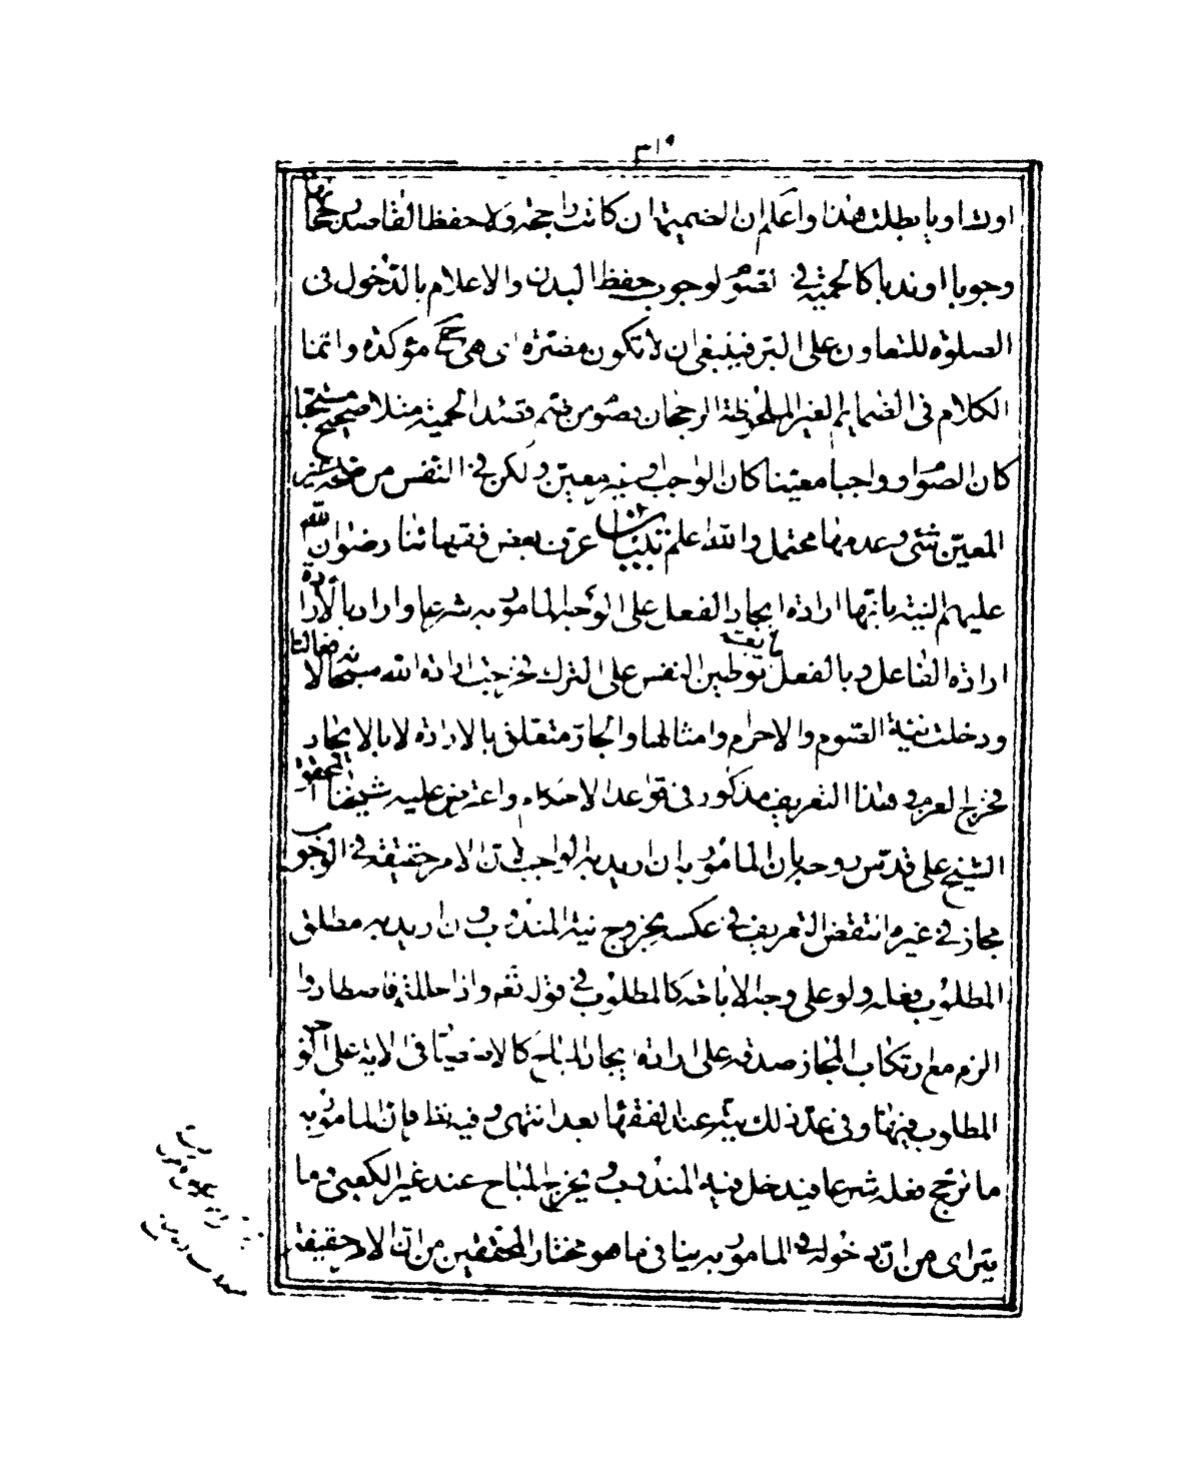 او تساويا بطلت هذا واعلم ان الضميمة ان كانت راجحة ولاحظ القاصد رجحانها
وجوبا او ندبا كالحمية في الصوم لوجوب حفظ البدن والاعلام بالدخول في
الصلوة للتعاون على البر فينبغي ان لا تكون مضرة اذ هي ح مؤكدة وانما
الكلام في الضمايم الغير الملحوظة الرجحان فصوم من ضم قصد الحمية مثلا صحيح مستحبا
كان الصوم او واجبا معينا كان الواجب او غير معين ولكن في النفس من صحة غير
المعين شئ وعدمها محتمل والله اعلم تبيان عرف بعض فقهائنا رضوان الله
عليهم النية بانها ارادة ايجاد الفعل على الوجه المامور به شرعا واراد بالارادة
ارادة الفاعل وبالفعل ما يعم توطين النفس على الترك فخرجت ارادة الله سبحانه لافعالنا
ودخلت نية الصوم والاحرام وامثالها والجار متعلق بالارادة لا بالايجاد
فخرج العزم وهذا التعريف مذكور في قواعد الاحكام واعترض عليه شيخنا المحقق
الشيخ علي قدس روحه بان المامور به ان اريد به الواجب لان الامر حقيقة في الوجوب
مجاز في غيره انتقض التعريف في عكسه بخروج نية المندوب وان اريد به مطلق
المطلوب فعله ولو على وجه الاباحة كالمطلوب في قوله تعم واذا حللتم فاصطادوا
الزم مع ارتكاب المجاز صدقه على ارادة ايجاد المباح كالاصطياد في الاية على النحو
المطلوب فيها وفي عد ذلك نية عند الفقهاء بعد انتهى وفيه نظر فان المامور به
ما ترجح فعله شرعا فيدخل فيه المندوب ويخرج المباح عند غير الكعبي وما
يترااى من ان دخوله في المامور به ينافي ما هو مختار المحققين من ان الامر حقيقة